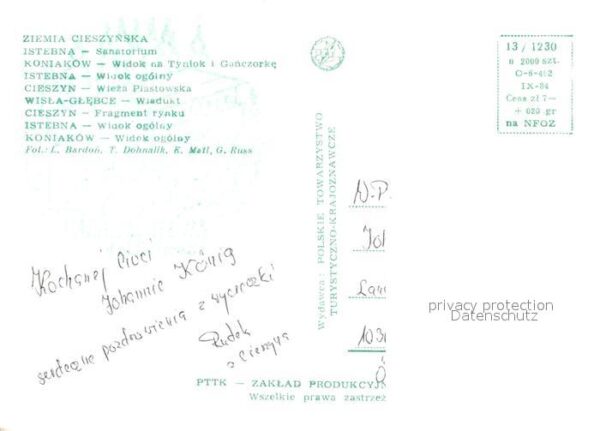 ZIEMIA CIESZYŃSKA
ISTEBNA — Sanatorium
KONIAKÓW — Widok na Tyniok i Gańczorkę
ISTEBNA — Widok ogólny
CIESZYN — Wieża Piastowska
WISŁA-GŁĘBCE — Wiadukt
CIESZYN — Fragment rynku
ISTEBNA — Widok ogólny
KONIAKÓW — Widok ogólny
Fot.: L. Bardoń, T. Dohnalik, K. Mall, G. Russ
13 / 1230
n 2000 szt.
O-6-412
IX-84
Cena zł 7—
+ 020 gr
na NFOZ
Wydawca: POLSKIE TOWARZYSTWO
TURYSTYCZNO-KRAJOZNAWCZE
Kochanej Cioci
Johannie König
serdeczne pozdrowienia z wycieczki
Rudek
z Cieszyna
N.P.
Joh
privacy protection
Datenschutz
PTTK — ZAKŁAD PRODUKCYJN
Wszelkie prawa zastrzeż